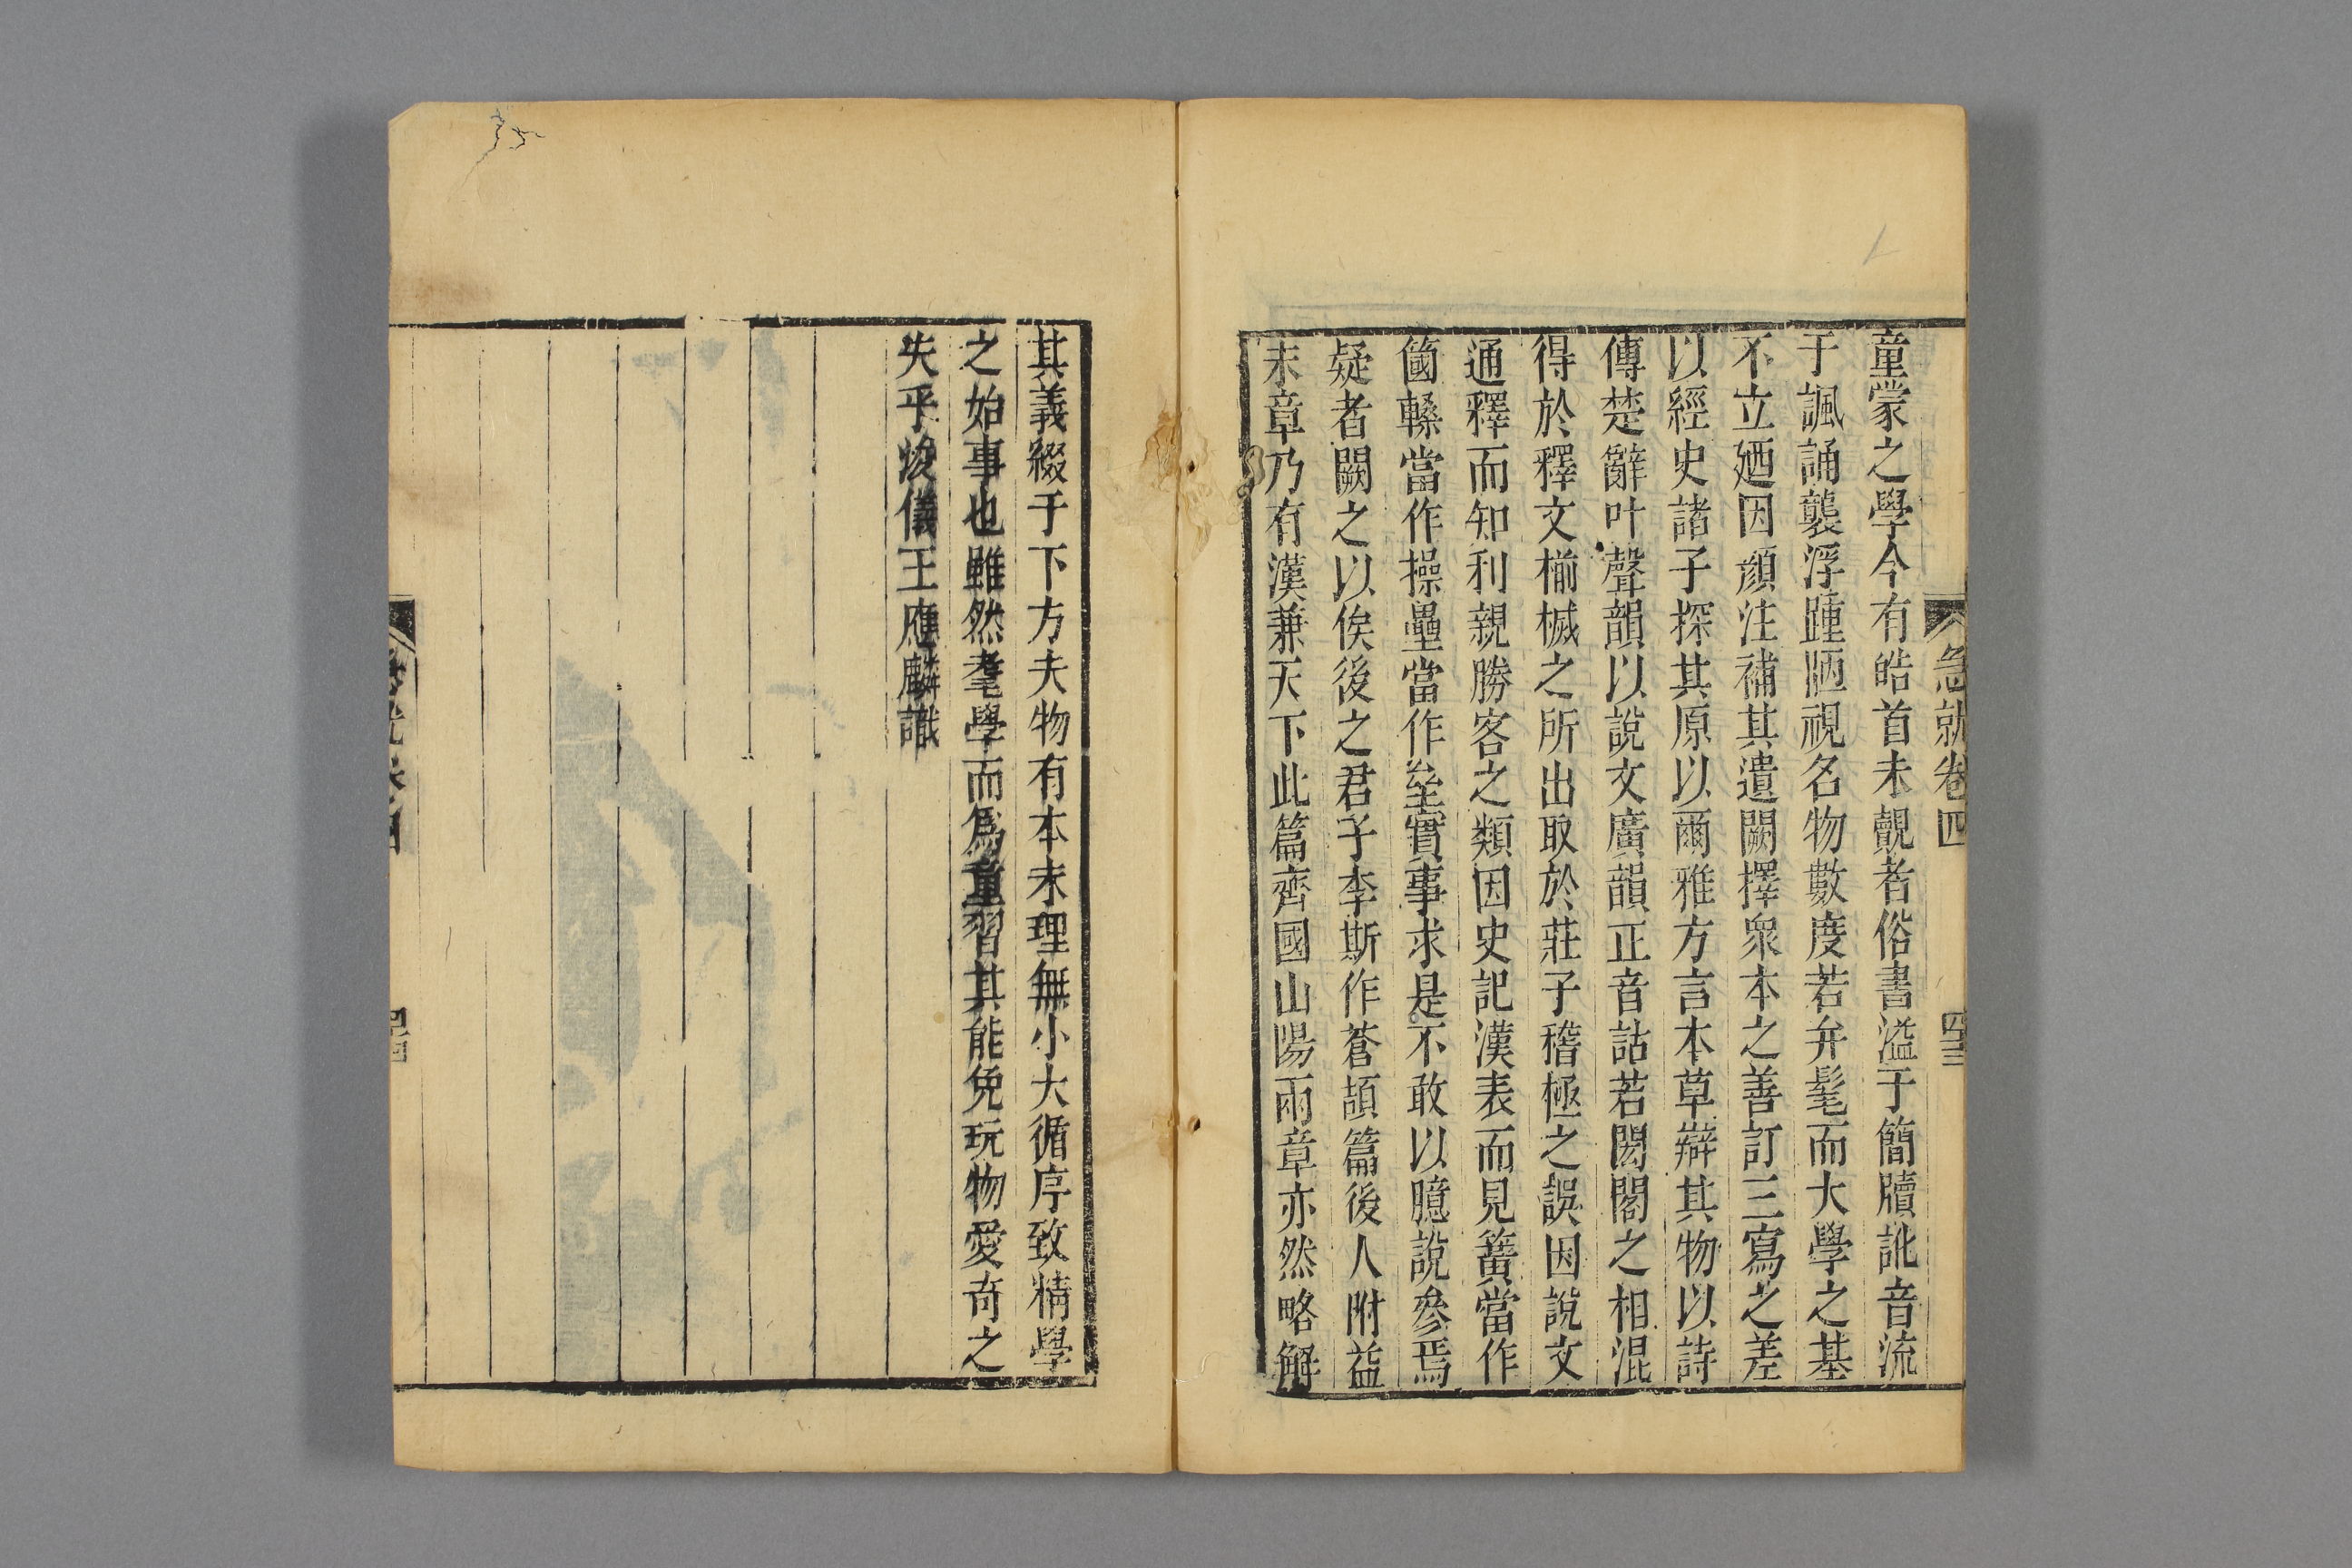 急就卷四
四三
童蒙之學今有皓首未覩者俗書溢于簡牘訛音流
于諷誦襲浮踵陋視名物數度若弁髦而大學之基
不立廼因顔注補其遺闕擇衆本之善訂三寫之差
以經史諸子探其原以爾雅方言本草辯其物以詩
傳楚辭叶聲韻以說文廣韻正音詁若閎閣之相混
得於釋文椾楲之所出取於莊子稽極之誤因說文
通釋而知利親勝客之類因史記漢表而見簧當作
箘轑當作操壘當作垒實事求是不敢以臆說參焉
疑者闕之以俟後之君子李斯作蒼頡篇後人附益
末章乃有漢兼天下此篇齊國山陽兩章亦然略解
其義綴于下方夫物有本末理無小大循序致精學
之始事也雖然耄學而爲童習其能免玩物愛奇之
失乎浚儀王應麟識